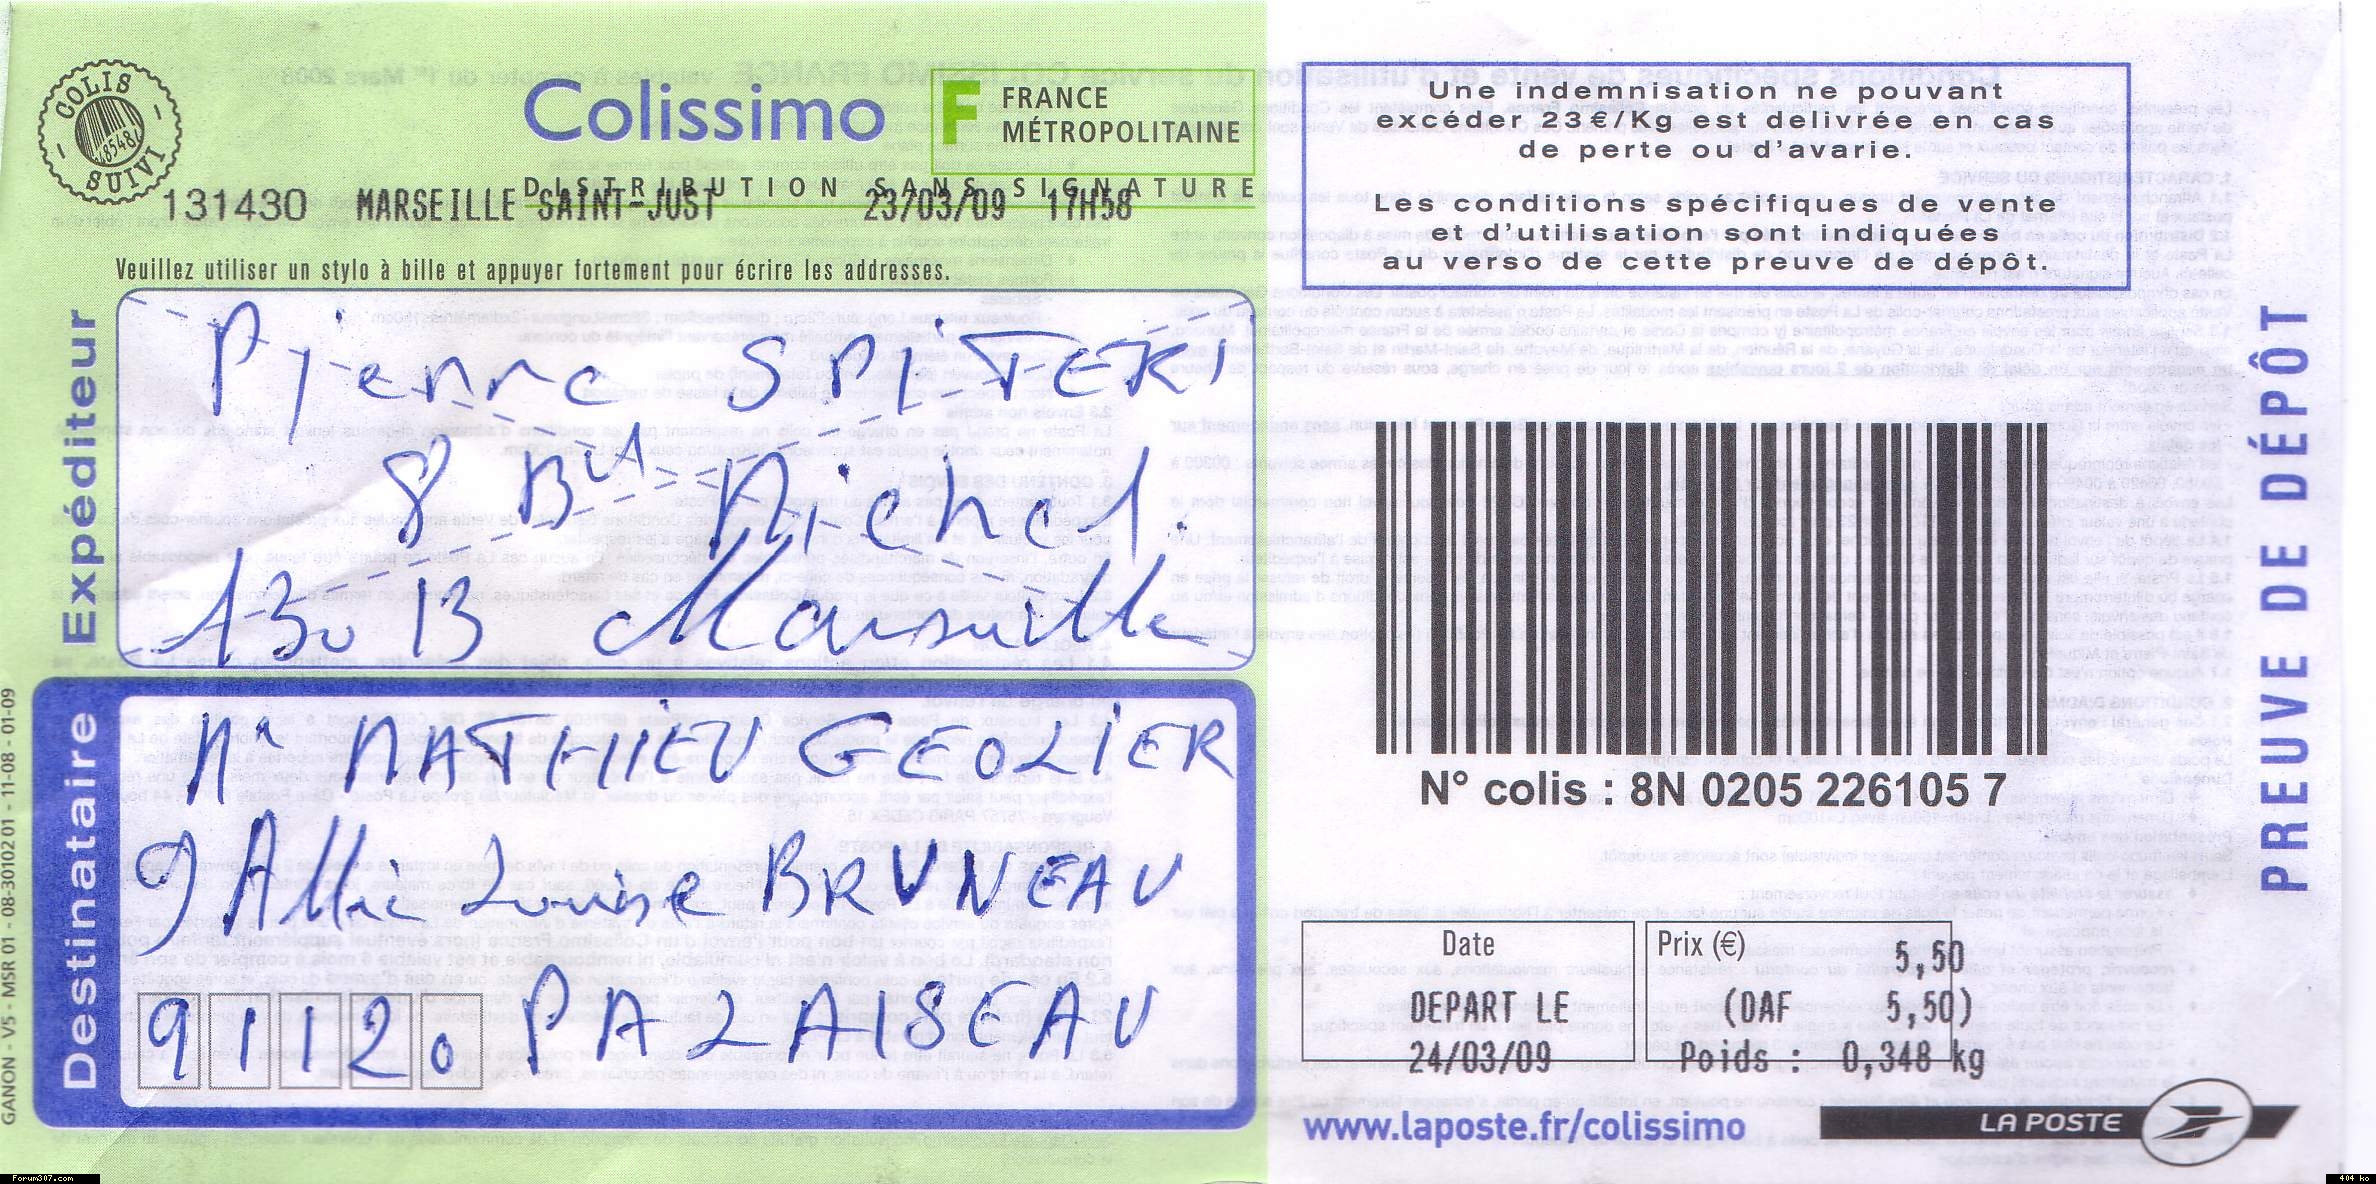 COLIS SUIVI
48548
Colissimo F FRANCE
MÉTROPOLITAINE
DISTRIBUTION SANS SIGNATURE
131430 MARSEILLE SAINT-JUST 23/03/09 17H58
Veuillez utiliser un stylo à bille et appuyer fortement pour écrire les addresses.
Expéditeur
Pierre SPITERI
8 Bd Michel
13013 Marseille
Destinataire
Mr MATHIEU GEOLIER
9 Allée Louise BRUNEAU
91120 PALAISEAU
GANON - V5 - MSR 01 - 08-30102 01 - 11-08 - 01-09
Une indemnisation ne pouvant
excéder 23€/Kg est delivrée en cas
de perte ou d'avarie.
Les conditions spécifiques de vente
et d'utilisation sont indiquées
au verso de cette preuve de dépôt.
N° colis : 8N 0205 226105 7
PREUVE DE DÉPÔT
Date
DEPART LE
24/03/09
Prix (€) 5,50
(DAF 5,50)
Poids : 0,348 kg
www.laposte.fr/colissimo
LA POSTE
Forum307.com
404 ko